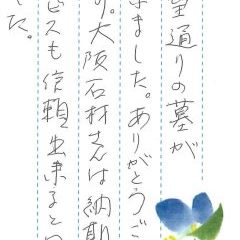 望通りの墓が
ました。ありがとうご
り。大阪石材さんは納期
ビスも信頼出来ると
た。